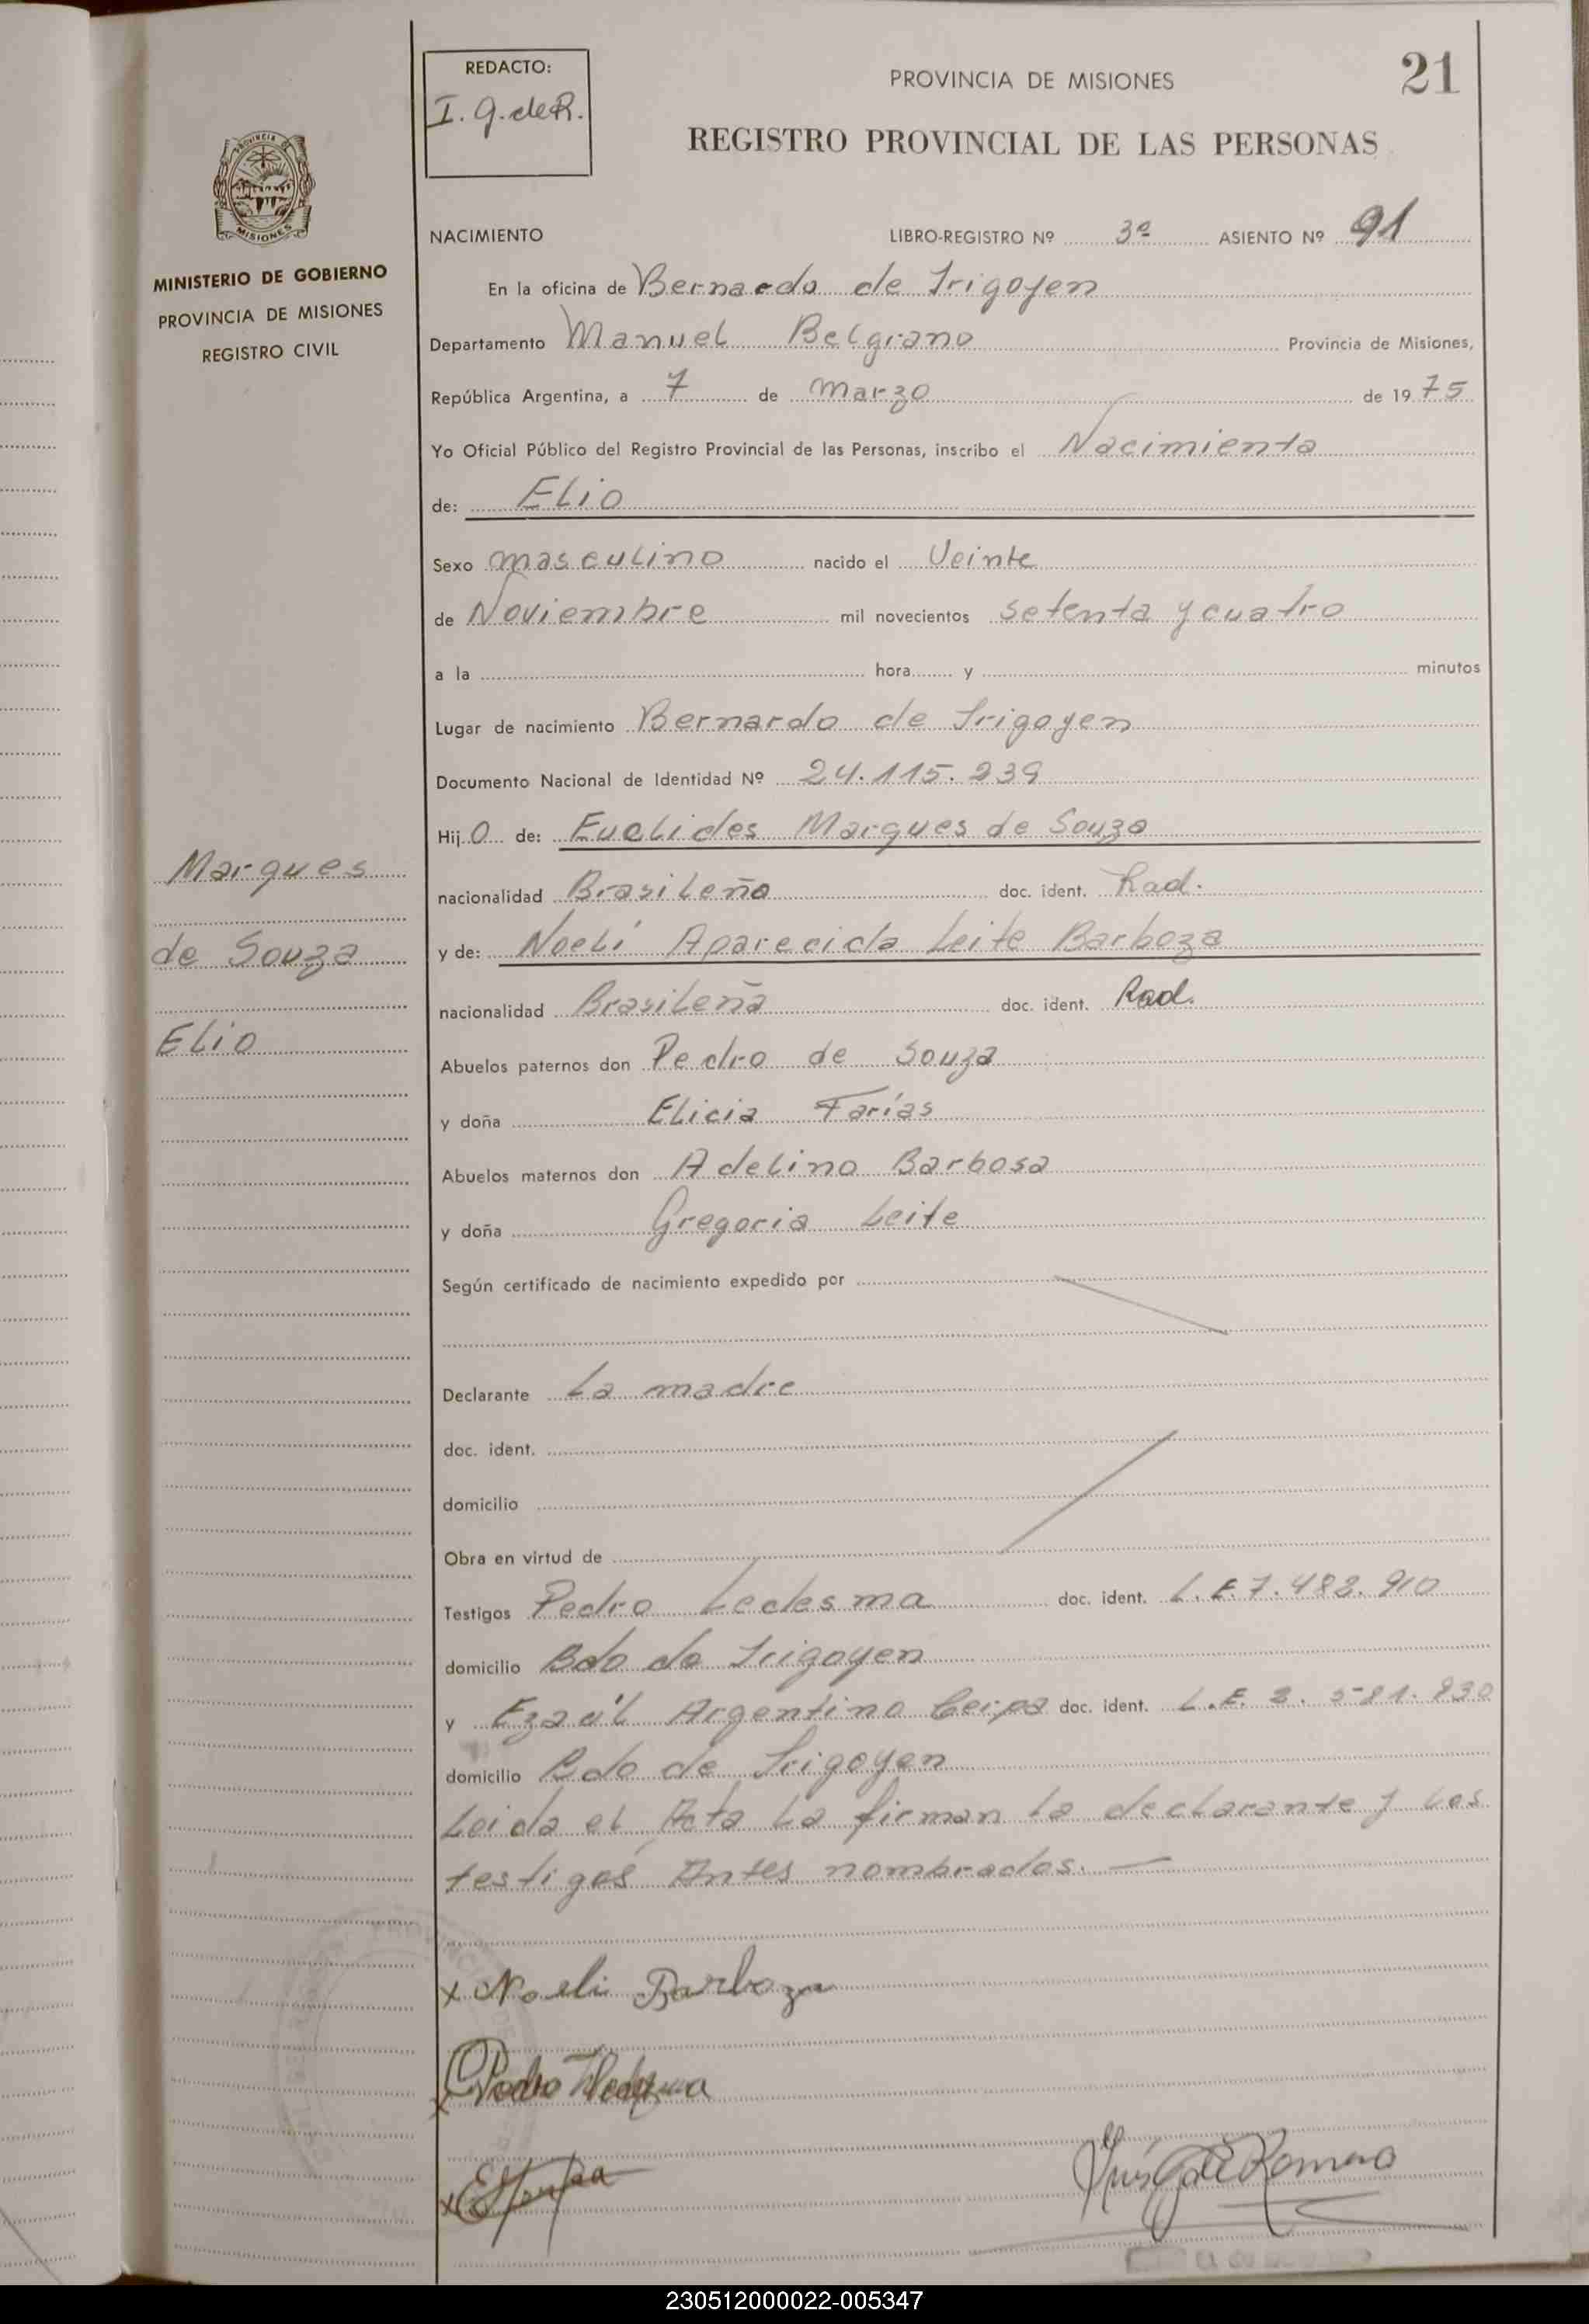 REDACTO:
I. G. de R.
PROVINCIA DE MISIONES
21
REGISTRO PROVINCIAL DE LAS PERSONAS
MISIONES
MINISTERIO DE GOBIERNO
PROVINCIA DE MISIONES
REGISTRO CIVIL
NACIMIENTO LIBRO-REGISTRO Nº 3º ASIENTO Nº 91
En la oficina de Bernardo de Irigoyen
Departamento Manuel Belgrano Provincia de Misiones,
República Argentina, a 7 de Marzo de 1975
Yo Oficial Público del Registro Provincial de las Personas, inscribo el Nacimiento
de: Elio
Sexo masculino nacido el Veinte
de Noviembre mil novecientos setenta y cuatro
a la hora y minutos
Lugar de nacimiento Bernardo de Irigoyen
Documento Nacional de Identidad Nº 24.115.239
Hijo de: Euclides Marques de Souza
Marques
nacionalidad Brasileña doc. ident. Rad.
de Souza
y de: Noelí Aparecida Leite Barboza
nacionalidad Brasileña doc. ident. Rad.
Elio
Abuelos paternos don Pedro de Souza
y doña Elicia Farías
Abuelos maternos don Adelino Barbosa
y doña Gregoria Leite
Según certificado de nacimiento expedido por
Declarante La madre
doc. ident.
domicilio
Obra en virtud de
Testigos Pedro Ledesma doc. ident. L.E. 7.482.910
domicilio Bdo de Irigoyen
y Ezaúl Argentino doc. ident. L.E.
domicilio Bdo de Irigoyen
Leida el Acta La firman la declarante y los
testigos Antes nombrados. —
x Noeli Barboza
x Pedro Ledesma
x
230512000022-005347